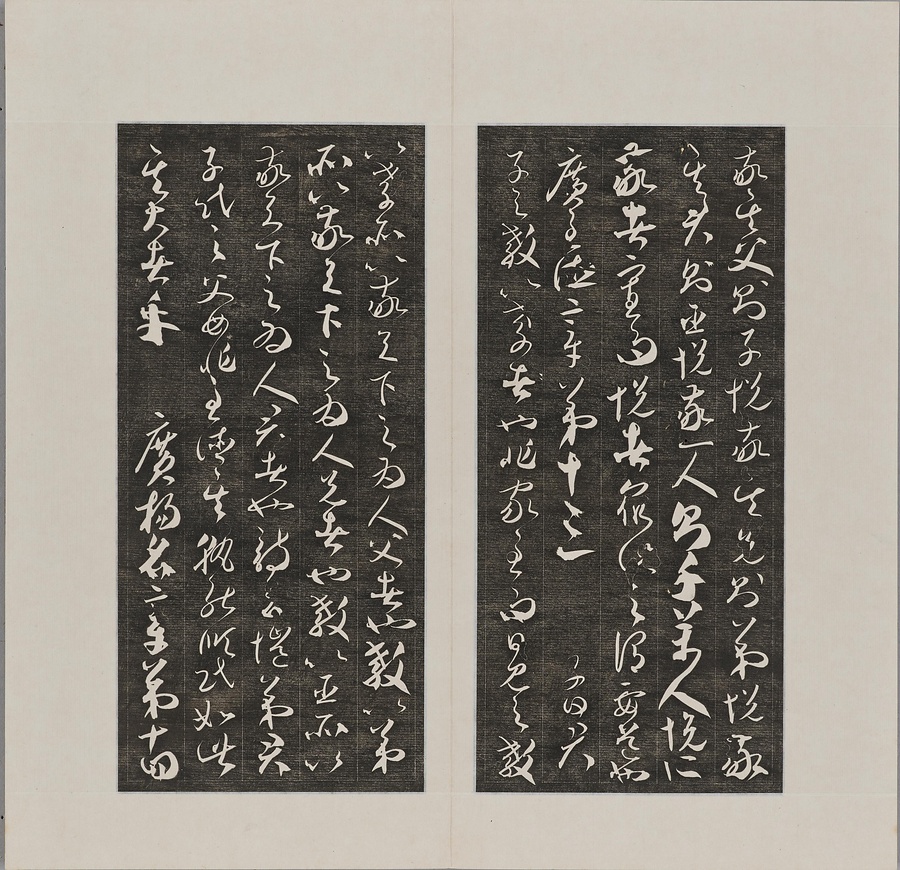 敬其父則子悅敬其兄則弟悅敬
其君則臣悅敬一人而千萬人悅所
敬者寡而悅者眾此之謂要道也
廣至德章第十三 子曰君
子之教以孝者也非家至而日見之教
以孝所以敬天下之為人父者也教以弟
所以敬天下之為人兄者也教以臣所以
敬天下之為人君者也詩云愷弟君
子民之父母非至德其孰能順民如此
其大者乎 廣揚名章第十四